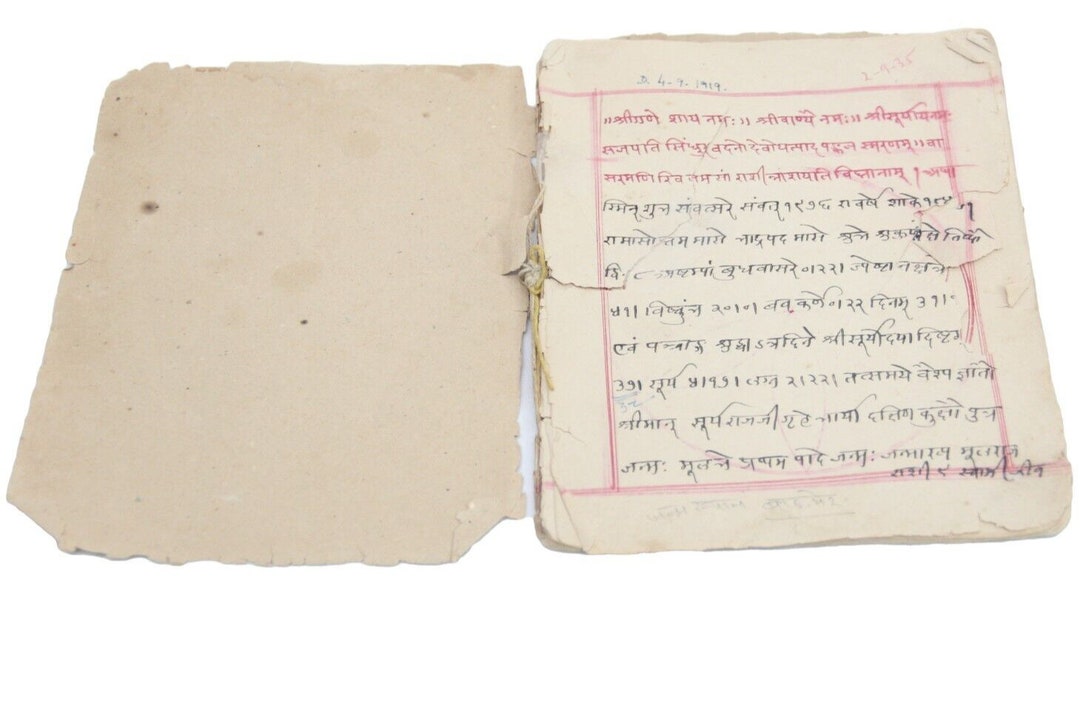 D. 4-9-1919.
2-9-35
॥श्रीगणे शाय नमः॥ श्रीवाण्यै नमः॥ श्रीसूर्यायनमः
सजपति सिंधुर वदनो देवोयत्पाद पङ्कज स्मरणम्॥वा
सरमणि रिव तमसां राशीन्नाशयति विघ्नानाम्। अथा
स्मिन् शुभ संवत्सरे संवत् १९७६ रा वर्षे शाके १८४१
रामासोत्तम मासे भाद्रपद मासे शुभे शुक्लपक्षे तिथौ
८ अष्टम्यां बुधवासरे ०।२२। ज्येष्ठा नक्षत्रे
४१। विष्कुंभ २०।०। बव कर्णे ०।२२ दिनम् ३१।०
एवं पञ्चाङ्ग शुद्धा ऽत्रदिने श्रीसूर्योदया दिष्टम्
३७। सूर्य ४।१७। लग्न २।२२। तत्समये वैश्य ज्ञातौ
श्रीमान् सूर्यराजजी गृहे भार्या दक्षिण कुक्षौ पुत्र
जन्मः मूलभे प्रथम पादे जन्मः जन्माख्य मूलराज
राशी ९ स्वामी
जन्म स्थान